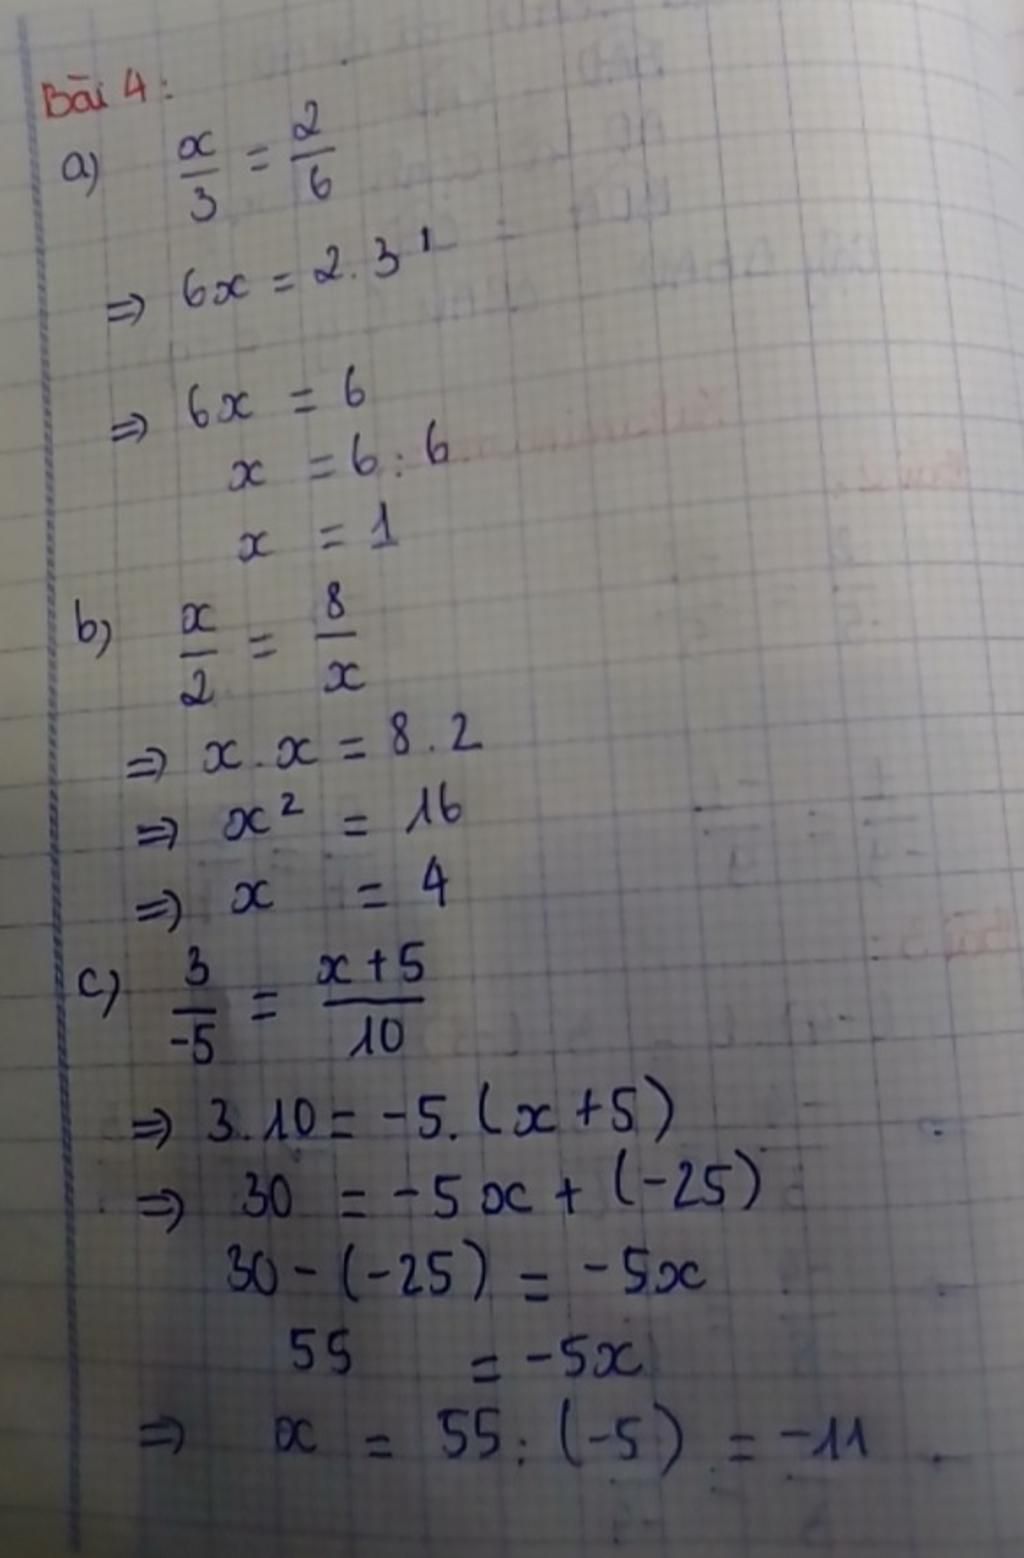 Bài 4:
a) x/3 = 2/6
⇒ 6x = 2.3
⇒ 6x = 6
x = 6:6
x = 1
b) x/2 = 8/x
⇒ x.x = 8.2
⇒ x² = 16
⇒ x = 4
c) 3/-5 = x+5/10
⇒ 3.10 = -5.(x+5)
⇒ 30 = -5x + (-25)
30-(-25) = -5x
55 = -5x
⇒ x = 55:(-5) = -11